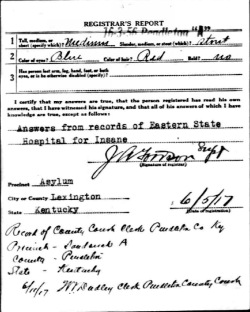 REGISTRAR'S REPORT
16-3-56 Pendleton "A"
1 Tall, medium, or short (specify which)? Medium Slender, medium, or stout (which)? Stout
2 Color of eyes? Blue Color of hair? Red Bald? no
3 Has person lost arm, leg, hand, foot, or both eyes, or is he otherwise disabled?
I certify that my answers are true, that the person registered has read his own answers, that I have witnessed his signature, and that all of his answers of which I have knowledge are true, except as follows:
Answers from records of Eastern State
Hospital for Insane
Supt
(Signature of registrar)
Precinct Asylum
City or County Lexington
State Kentucky
6/5/17
(Date of registration)
Record of County Court Clerk Pendleton Co Ky
Precinct - A
County - Pendleton
State - Kentucky
Dudley Clerk Pendleton County Court